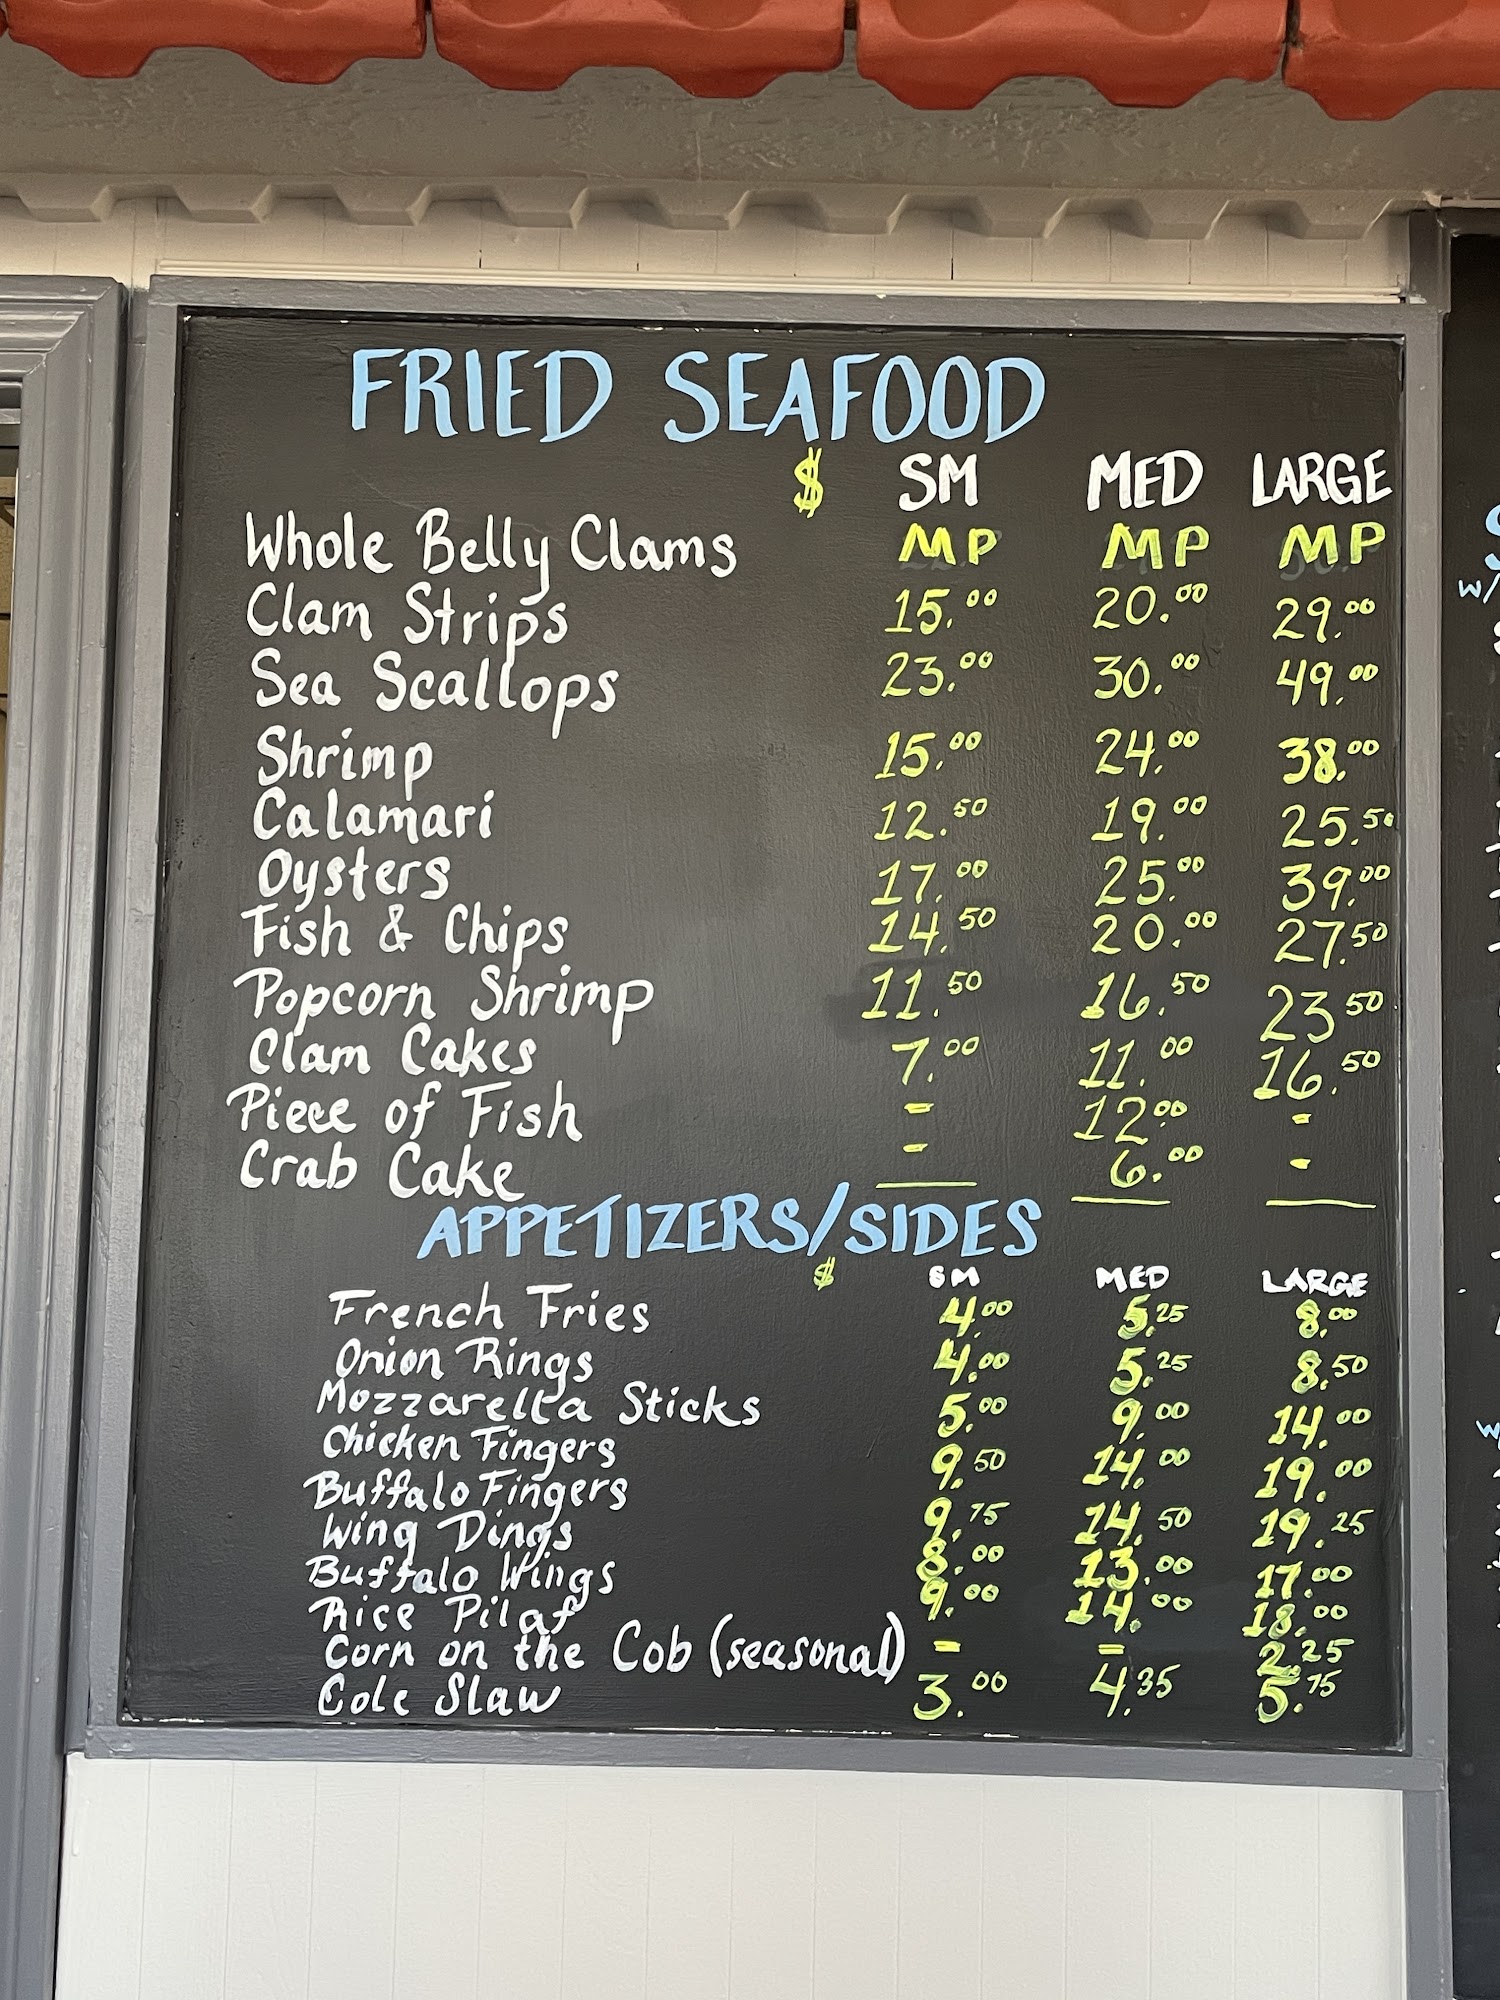 FRIED SEAFOOD
$ SM MED LARGE
Whole Belly Clams MP MP MP
Clam Strips 15.00 20.00 29.00
Sea Scallops 23.00 30.00 49.00
Shrimp 15.00 24.00 38.00
Calamari 12.50 19.00 25.50
Oysters 17.00 25.00 39.00
Fish & Chips 14.50 20.00 27.50
Popcorn Shrimp 11.50 16.50 23 50
Clam Cakes 7.00 11.00 16.50
Piece of Fish - 12.00 -
Crab Cake - 6.00 -
APPETIZERS/SIDES
$ SM MED LARGE
French Fries 4.00 5.25 8.00
Onion Rings 4.00 5.25 8.50
Mozzarella Sticks 5.00 9.00 14.00
Chicken Fingers 9.50 14.00 19.00
Buffalo Fingers 9.75 14.50 19.25
Wing Dings 8.00 13.00 17.00
Buffalo Wings 9.00 14.00 18.00
Rice Pilaf - = 2.25
Corn on the Cob (seasonal)
Cole Slaw 3.00 4.35 5.75
w/